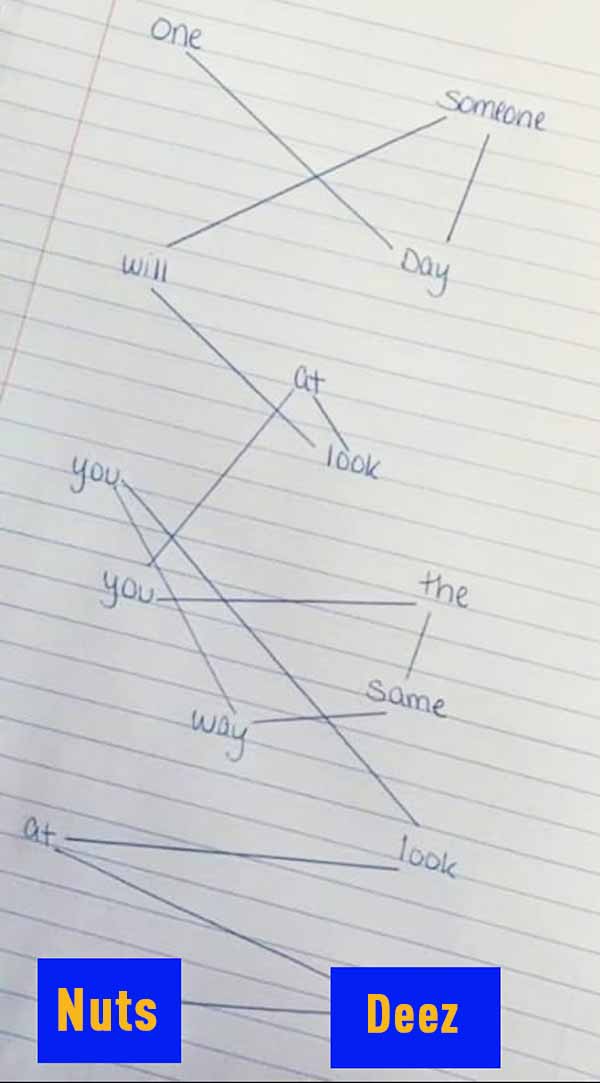 One
Someone
Day
will
at
look
you
you
the
same
way
at
look
Nuts
Deez